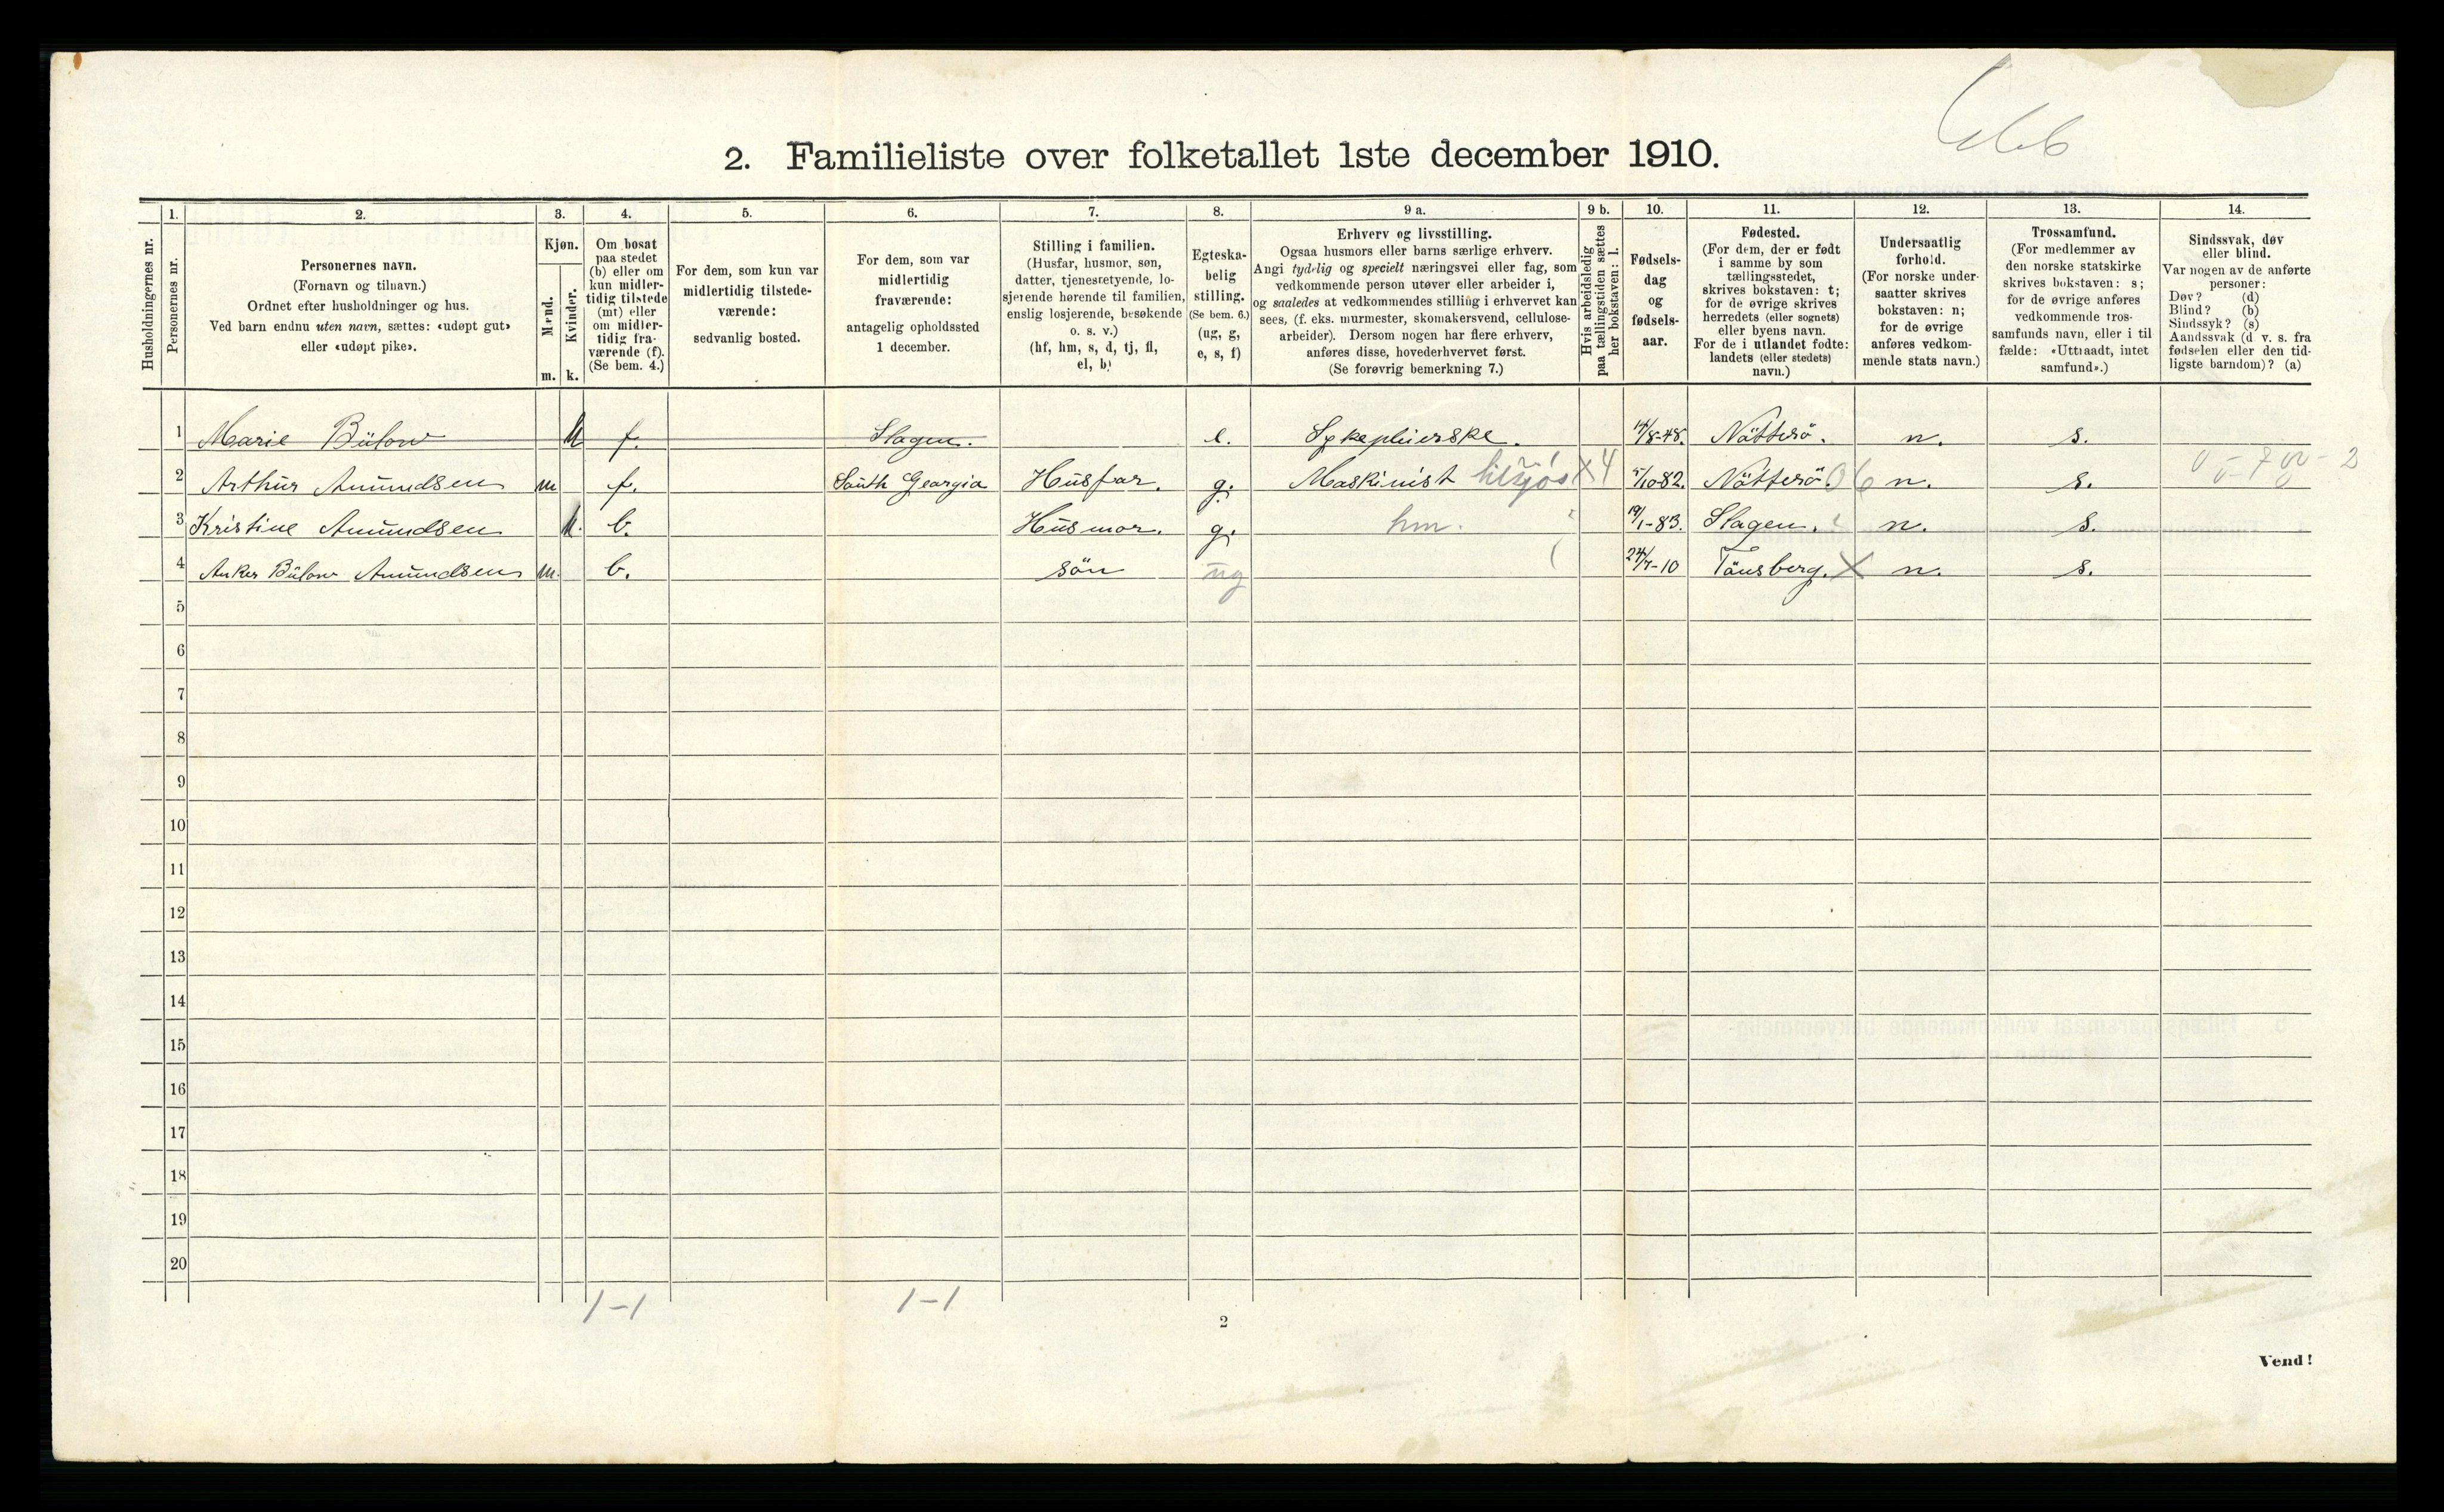 2. Familieliste over folketallet 1ste december 1910.
Husholdningernes nr.
1. Personernes nr.
2. Personernes navn.
(Fornavn og tilnavn.)
Ordnet efter husholdninger og hus.
Ved barn endnu uten navn, sættes: «udøpt gut»
eller «udøpt pike».
3. Kjøn.
Mænd. m.
Kvinder. k.
4. Om bosat
paa stedet
(b) eller om
kun midler-
tidig tilstede
(mt) eller
om midler-
tidig fra-
værende (f).
(Se bem. 4.)
5. For dem, som kun var
midlertidig tilstede-
værende:
sedvanlig bosted.
6. For dem, som var
midlertidig
fraværende:
antagelig opholdssted
1 december.
7. Stilling i familien.
(Husfar, husmor, søn,
datter, tjenestetyende, lo-
sjerende hørende til familien,
enslig losjerende, besøkende
o. s. v.)
(hf, hm, s, d, tj, fl,
el, b)
8. Egteska-
belig
stilling.
(Se bem. 6.)
(ug, g,
e, s, f)
9 a. Erhverv og livsstilling.
Ogsaa husmors eller barns særlige erhverv.
Angi tydelig og specielt næringsvei eller fag, som
vedkommende person utøver eller arbeider i,
og saaledes at vedkommendes stilling i erhvervet kan
sees, (f. eks. murmester, skomakersvend, cellulose-
arbeider). Dersom nogen har flere erhverv,
anføres disse, hovederhvervet først.
(Se forøvrig bemerkning 7.)
9 b. Hvis arbeidsledig
paa tællingstiden sættes
her bokstaven: l.
10. Fødsels-
dag
og
fødsels-
aar.
11. Fødested.
(For dem, der er født
i samme by som
tællingsstedet,
skrives bokstaven: t;
for de øvrige skrives
herredets (eller sognets)
eller byens navn.
For de i utlandet fødte:
landets (eller stedets)
navn.)
12. Undersaatlig
forhold.
(For norske under-
saatter skrives
bokstaven: n;
for de øvrige
anføres vedkom-
mende stats navn.)
13. Trossamfund.
(For medlemmer av
den norske statskirke
skrives bokstaven: s;
for de øvrige anføres
vedkommende tros-
samfunds navn, eller i til
fælde: «Uttraadt, intet
samfund».)
14. Sindssvak, døv
eller blind.
Var nogen av de anførte
personer:
Døv? (d)
Blind? (b)
Sindssyk? (s)
Aandssvak (d v. s. fra
fødselen eller den tid-
ligste barndom)? (a)
1 Marie Bülow k f. Slagen. e. Sykepleierske. 14/8-48. Nötterö. n. s.
2 Arthur Amundsen m f. South Georgia Husfar. g. Maskinist tilsjøs X4 5/10-82. Nötterö. 06 n. s.
3 Kristine Amundsen k. b. Husmor. g. hm. 19/1-83. Slagen. n. s.
4 Anker Bülow Amundsen m. b. sön ug 24/7-10 Tönsberg. X n. s.
5
6
7
8
9
10
11
12
13
14
15
16
17
18
19
20
1-1 1-1
2
Vend!